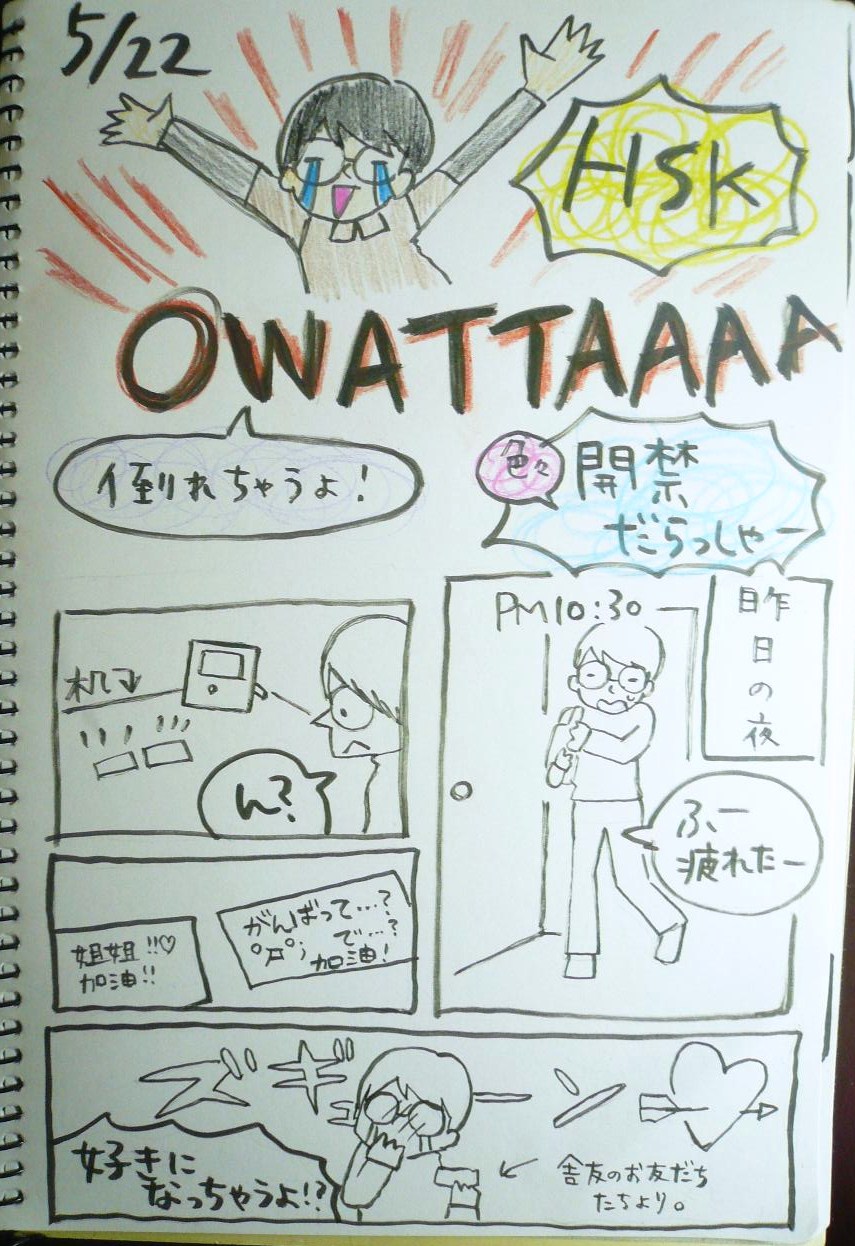 5/22
HSK
OWATTAAAA
色々
開禁
だらっしゃー
倒れちゃうよ!
昨日の夜
PM10:30
ふー
疲れたー
机
ん?
がんばって…?
で…?
加油!
姐姐!!♡
加油!!
ズギューン
好きに
なっちゃうよ!?
舎友のお友だち
たちより。